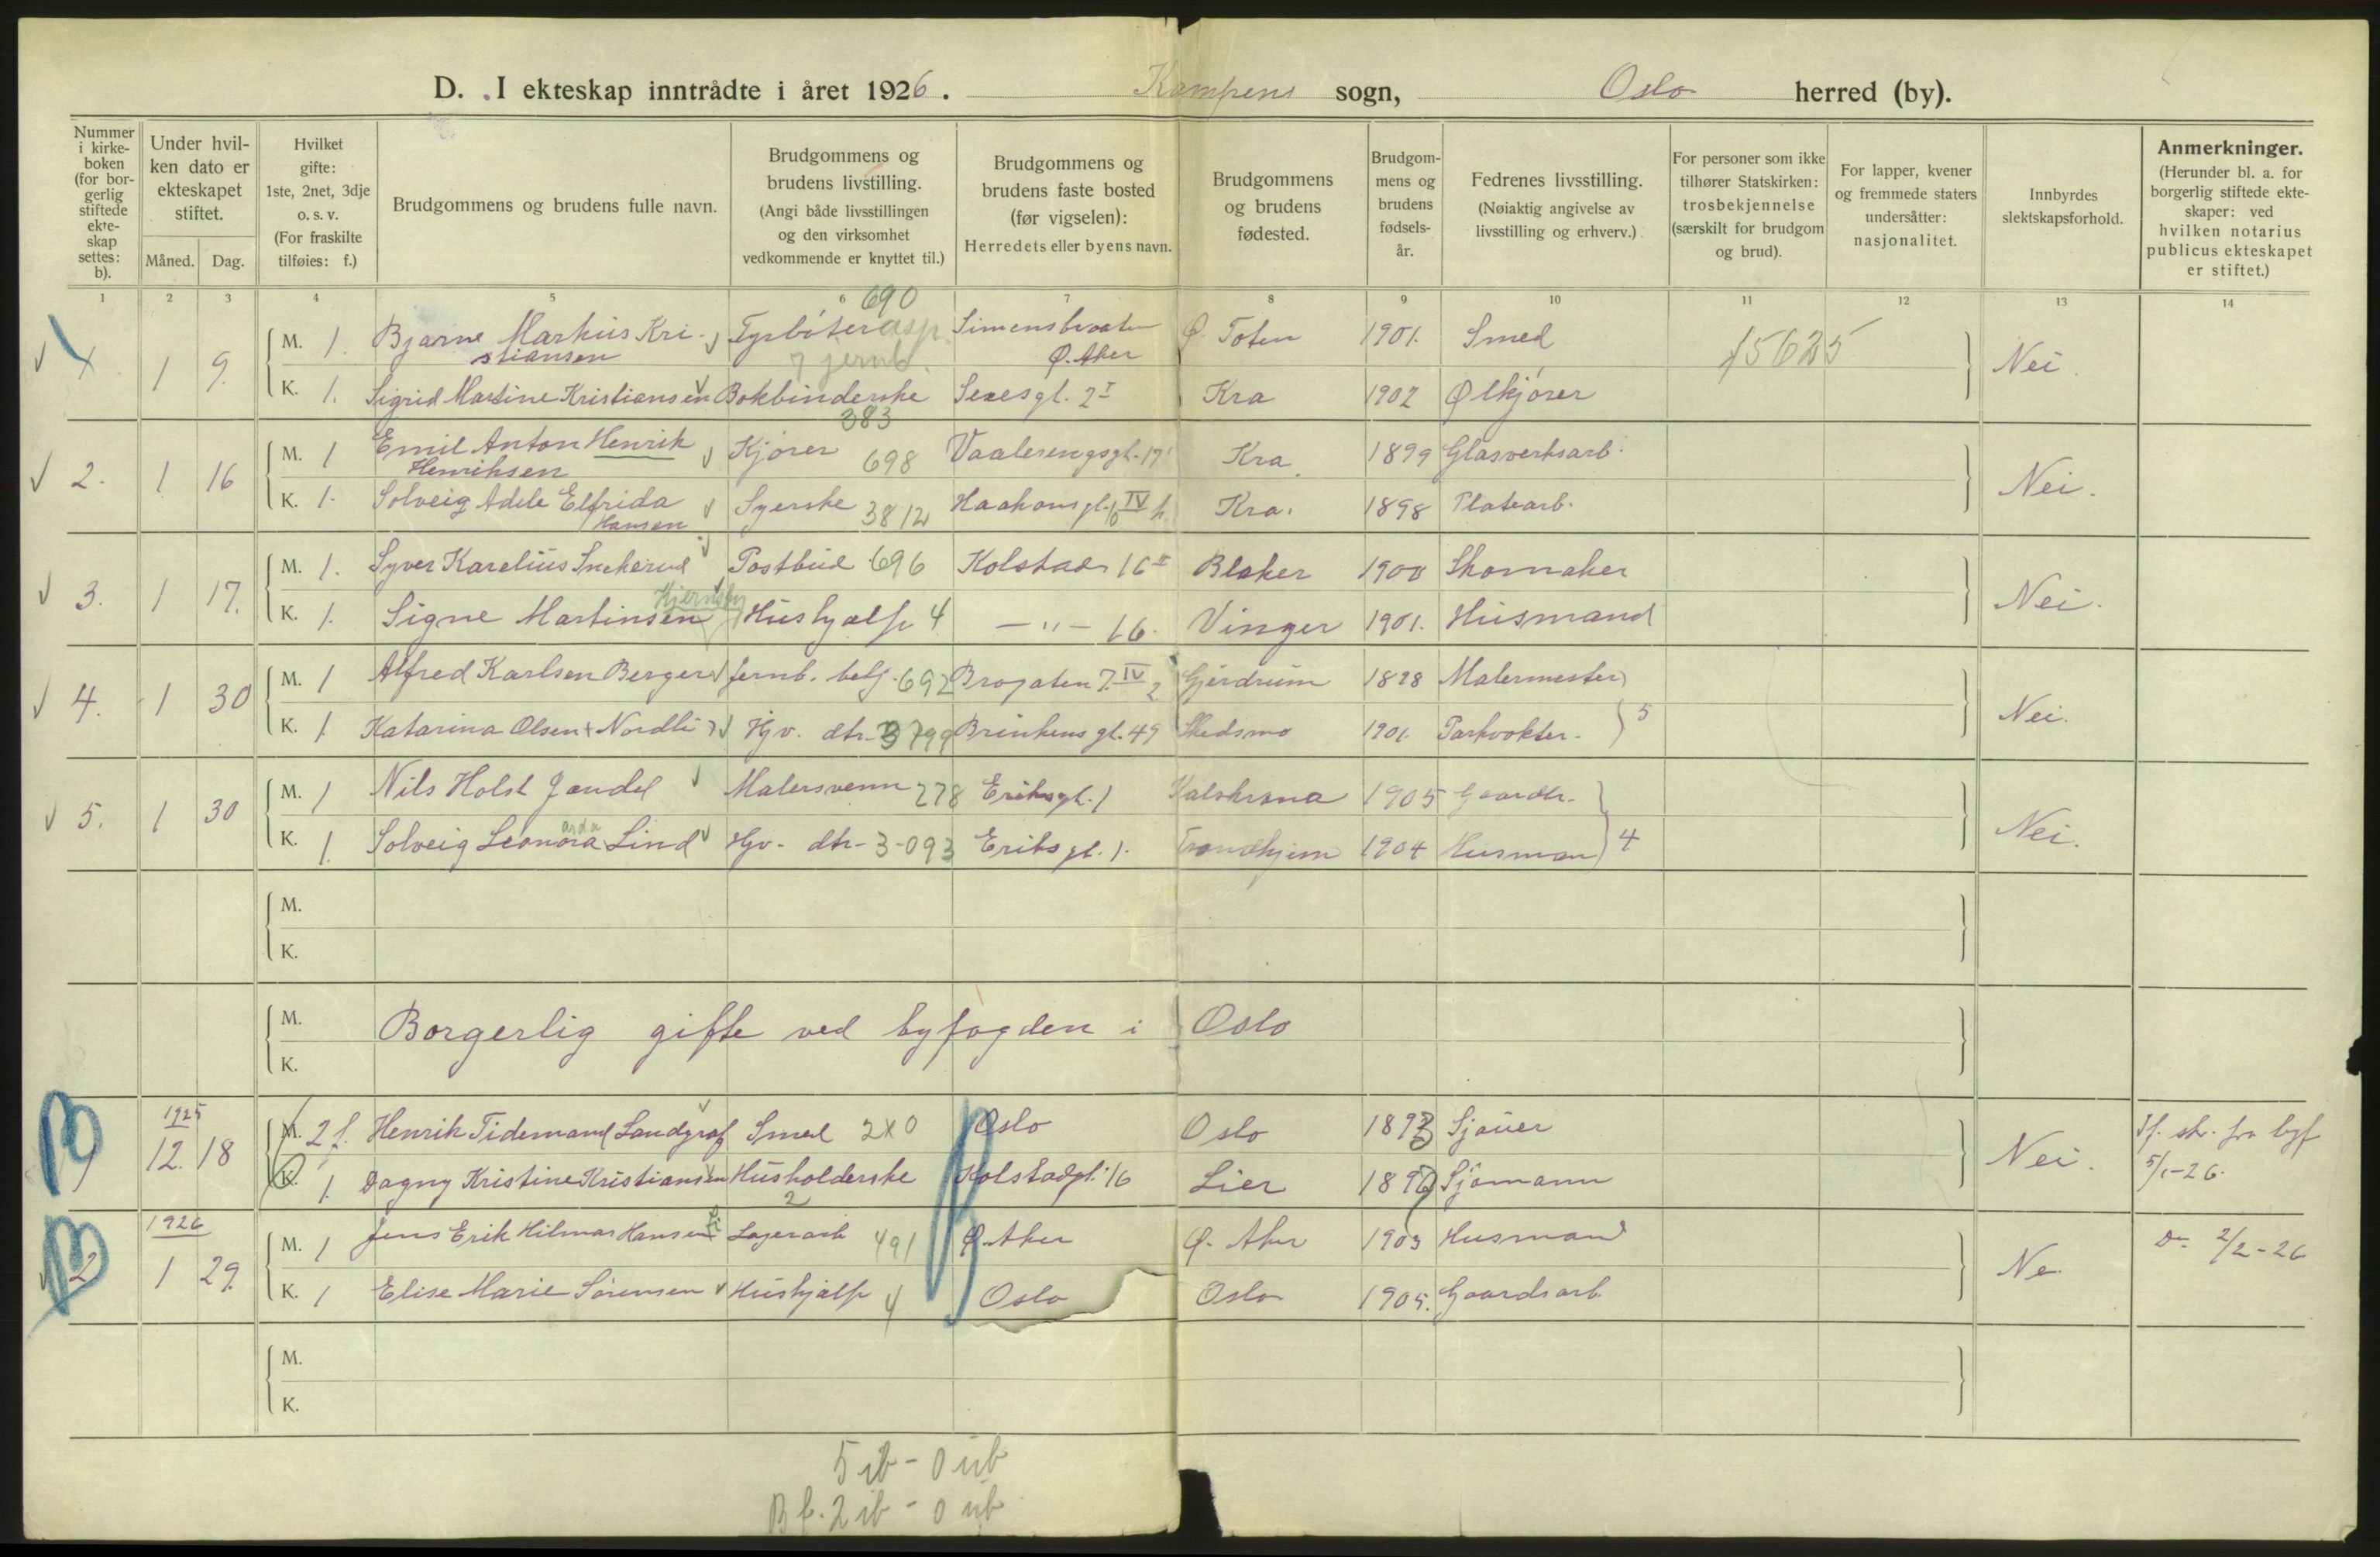 D. I ekteskap inntrådte i året 1926. Kampens sogn, Oslo herred (by).
Nummer i kirkeboken (for borgerlig stiftede ekteskap settes: b).
Under hvilken dato er ekteskapet stiftet.
Måned. Dag.
Hvilket gifte: 1ste, 2net, 3dje o. s. v. (For fraskilte tilføies: f.)
Brudgommens og brudens fulle navn.
Brudgommens og brudens livstilling. (Angi både livsstillingen og den virksomhet vedkommende er knyttet til.)
Brudgommens og brudens faste bosted (før vigselen): Herredets eller byens navn.
Brudgommens og brudens fødested.
Brudgommens og brudens fødselsår.
Fedrenes livsstilling. (Nøiaktig angivelse av livsstilling og erhverv.)
For personer som ikke tilhører Statskirken: trosbekjennelse (særskilt for brudgom og brud).
For lapper, kvener og fremmede staters undersåtter: nasjonalitet.
Innbyrdes slektskapsforhold.
Anmerkninger. (Herunder bl. a. for borgerlig stiftede ekteskaper: ved hvilken notarius publicus ekteskapet er stiftet.)
1 2 3 4 5 6 7 8 9 10 11 12 13 14
690
1 1 9. M. 1. Bjarne Markus Kristiansen Fyrbøter asp. 7 jernb. Simensbraaten Ø. Aker Ø. Toten 1901. Smed 15625 Nei.
K. 1. Sigrid Martine Kristiansen Bokbinderske 383 Sexesgt. 2 I Kra 1902 Ølkjører
2. 1 16 M. 1 Emil Anton Henrik Henriksen Kjører 698 Vaalerengsgt. 17 Kra. 1899 Glasverksarb. Nei.
K. 1. Solveig Adele Elfrida Hansen Syerske 3812 Haakonsgt. 10 IV h. Kra. 1898 Platearb.
3. 1 17. M. 1. Syver Karelius Snekerud Postbud 696 Kolstadgt 16 II Blaker 1900 Skomaker Nei.
K. 1. Signe Martinsen Hushjælp 4 — " — 16. Vinger 1901. Husmand
4. 1 30 M. 1 Alfred Karlsen Berger Jernb. betj. 692 Brogaten 7. IV 2 Gjerdrum 1898 Malermester 5 Nei.
K. 1. Katarina Olsen Nordli Hjv. dtr. 3799 Brinkens gt. 49 Skedsmo 1901. Parkvokter.
5. 1 30 M. 1 Nils Holst Jandel Malersvenn 278 Eriksgt. 1 1905 Gaardbr. 4 Nei.
K. 1. Solveig Leonora arda Lind Hjv. dtr. 3-093 Eriksgt. 1. Trondhjem 1904 Husman
M.
K.
M. Borgerlig gifte ved byfogden i Oslo
K.
1925
1 12. 18 M. 2 f. Henrik Tidemand Landgraf Smed 2X0 Oslo Oslo 1893 Sjauer Nei. If. sk. fra byf 5/1-26.
K. 1. Dagny Kristine Kristiansen Husholderske 2 Kolstadgt. 16 Lier 1897 Sjømann
1926
2 1 29. M. 1 Jens Erik Hilmar Hansen Lagerarb 491 Ø. Aker Ø. Aker 1903 Husmand Ne. Do 2/2-26
K. 1 Elise Marie Sørensen Hushjælp 4 Oslo Oslo 1905. Gaardsarb.
M.
K.
5 ib - 0 ub
Bf. 2 ib - 0 ub